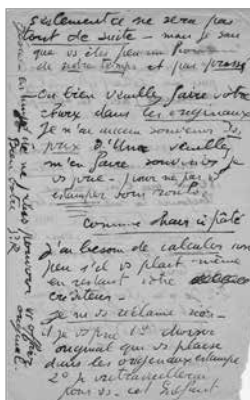 seulement ce ne sera pas
tout de suite – mais je sais
que vs êtes peu un homme
de notre temps et pas pressé
– ou bien veuillez faire votre
choix dans les originaux
Je n'ai aucun souvenir du
prix d'une veuillez
m'en faire souvenir je
vs prie – pour ne pas vs
estamper sans
comme chair à pâté
J'ai besoin de calculer un
peu s'il vs plait – même
en restant votre
créditeur –
Je ne vs réclame rien –
je vs prie 1° choisir
original que vs plaise
dans les originaux estampe
2° Je retravaillerai
pour vs – cet
de ne pouvoir vs offrir
original
Bien votre